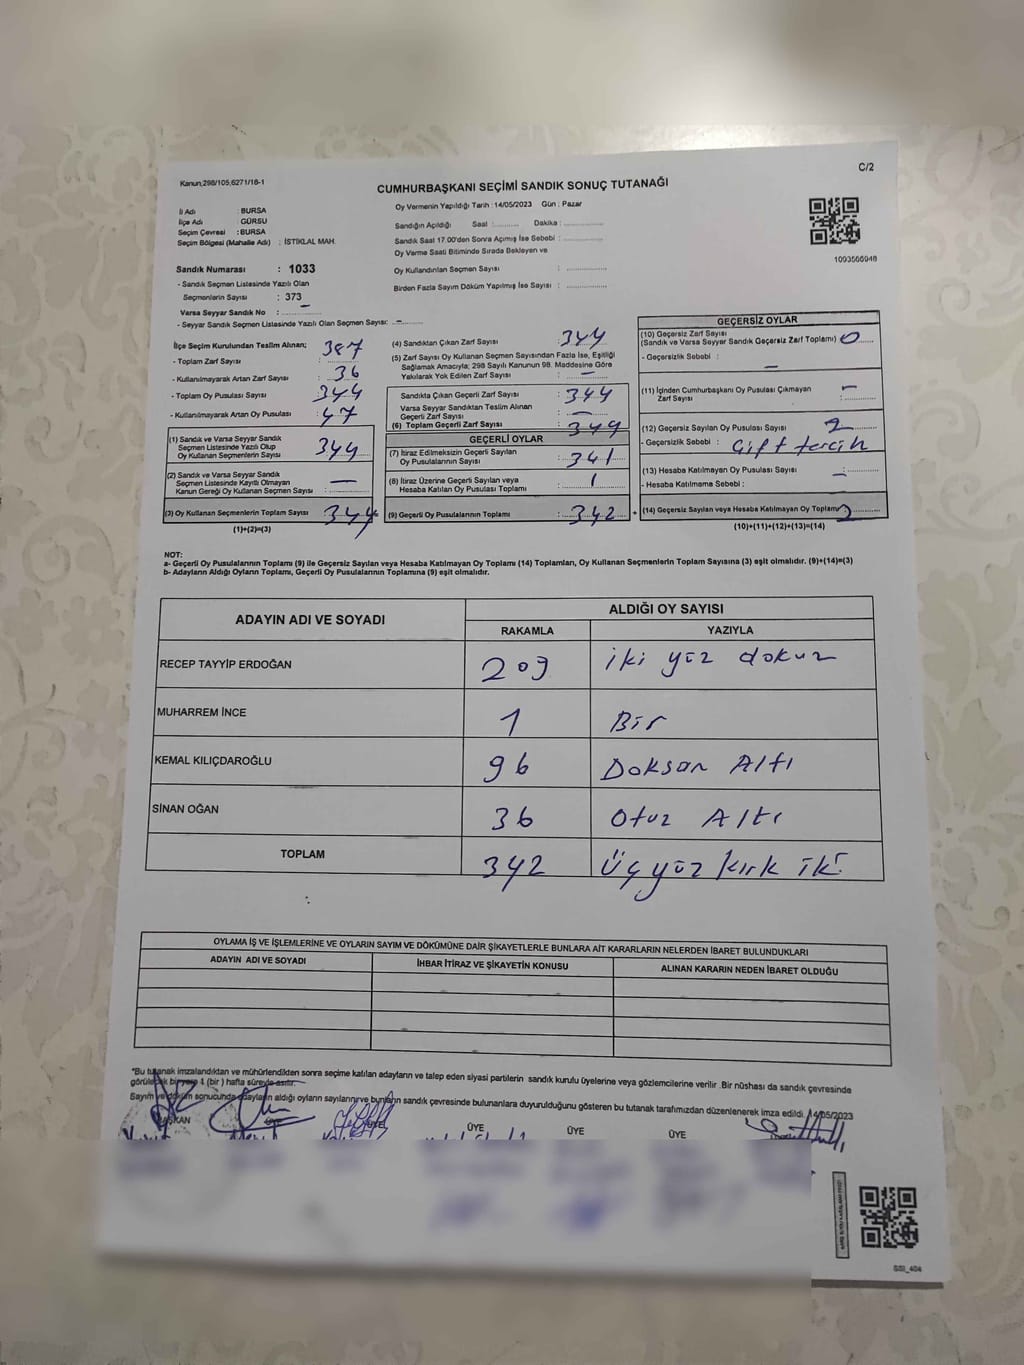 C/2
Kanun,298/105,6271/16-1
CUMHURBAŞKANI SEÇİMİ SANDIK SONUÇ TUTANAĞI
İl Adı : BURSA
İlçe Adı : GÜRSU
Seçim Çevresi : BURSA
Seçim Bölgesi (Mahalle Adı) : İSTİKLAL MAH.
Sandık Numarası : 1033
- Sandık Seçmen Listesinde Yazılı Olan
Seçmenlerin Sayısı : 373
Varsa Seyyar Sandık No : –
- Seyyar Sandık Seçmen Listesinde Yazılı Olan Seçmen Sayısı: –
Oy Vermenin Yapıldığı Tarih :14/05/2023 Gün : Pazar
Sandığın Açıldığı Saat :.......... Dakika :..............
Sandık Saat 17.00'den Sonra Açımış İse Sebebi :..............
Oy Verme Saati Bitiminde Sırada Bekleyen ve
Oy Kullandırılan Seçmen Sayısı :..............
Birden Fazla Sayım Döküm Yapılmış İse Sayısı :..............
1093566948
İlçe Seçim Kurulundan Teslim Alınan; 387
- Toplam Zarf Sayısı
- Kullanılmayarak Artan Zarf Sayısı : 36
- Toplam Oy Pusulası Sayısı : 344
- Kullanılmayarak Artan Oy Pusulası : 47
(1) Sandık ve Varsa Seyyar Sandık
Seçmen Listesinde Yazılı Olup
Oy Kullanan Seçmenlerin Sayısı 344
(2) Sandık ve Varsa Seyyar Sandık
Seçmen Listesinde Kayıtlı Olmayan
Kanun Gereği Oy Kullanan Seçmen Sayısı : –
(3) Oy Kullanan Seçmenlerin Toplam Sayısı 344
(1)+(2)=(3)
(4) Sandıktan Çıkan Zarf Sayısı : 344
(5) Zarf Sayısı Oy Kullanan Seçmen Sayısından Fazla İse, Eşitliği
Sağlamak Amacıyla; 298 Sayılı Kanunun 98. Maddesine Göre
Yakılarak Yok Edilen Zarf Sayısı : –
Sandıkta Çıkan Geçerli Zarf Sayısı : 344
Varsa Seyyar Sandıktan Teslim Alınan
Geçerli Zarf Sayısı : –
(6) Toplam Geçerli Zarf Sayısı : 344
GEÇERLİ OYLAR
(7) İtiraz Edilmeksizin Geçerli Sayılan
Oy Pusulalarının Sayısı : 341
(8) İtiraz Üzerine Geçerli Sayılan veya
Hesaba Katılan Oy Pusulası Toplamı : 1
(9) Geçerli Oy Pusulalarının Toplamı : 342
GEÇERSİZ OYLAR
(10) Geçersiz Zarf Sayısı
(Sandık ve Varsa Seyyar Sandık Geçersiz Zarf Toplamı) : 0
- Geçersizlik Sebebi : –
(11) İçinden Cumhurbaşkanı Oy Pusulası Çıkmayan
Zarf Sayısı : –
(12) Geçersiz Sayılan Oy Pusulası Sayısı : 2
- Geçersizlik Sebebi : Çift tercih
(13) Hesaba Katılmayan Oy Pusulası Sayısı : –
- Hesaba Katılmama Sebebi :
+ (14) Geçersiz Sayılan veya Hesaba Katılmayan Oy Toplamı 2
(10)+(11)+(12)+(13)=(14)
NOT:
a- Geçerli Oy Pusulalarının Toplamı (9) ile Geçersiz Sayılan veya Hesaba Katılmayan Oy Toplamı (14) Toplamları, Oy Kullanan Seçmenlerin Toplam Sayısına (3) eşit olmalıdır. (9)+(14)=(3)
b- Adayların Aldığı Oyların Toplamı, Geçerli Oy Pusulalarının Toplamına (9) eşit olmalıdır.
ADAYIN ADI VE SOYADI ALDIĞI OY SAYISI
RAKAMLA YAZIYLA
RECEP TAYYİP ERDOĞAN 209 iki yüz dokuz
MUHARREM İNCE 1 Bir
KEMAL KILIÇDAROĞLU 96 Doksan Altı
SİNAN OĞAN 36 Otuz Altı
TOPLAM 342 Üç yüz kırk iki
OYLAMA İŞ VE İŞLEMLERİNE VE OYLARIN SAYIM VE DÖKÜMÜNE DAİR ŞİKAYETLERLE BUNLARA AİT KARARLARIN NELERDEN İBARET BULUNDUKLARI
ADAYIN ADI VE SOYADI İHBAR İTİRAZ VE ŞİKAYETİN KONUSU ALINAN KARARIN NEDEN İBARET OLDUĞU
*Bu tutanak imzalandıktan ve mühürlendikten sonra seçime katılan adayların ve talep eden siyasi partilerin sandık kurulu üyelerine veya gözlemcilerine verilir .Bir nüshası da sandık çevresinde
görülecek bir yere 1 (bir ) hafta süreyle asılır.
Sayım ve döküm sonucunda adayların aldığı oyların sayılarını ve bunların sandık çevresinde bulunanlara duyurulduğunu gösteren bu tutanak tarafımızdan düzenlenerek imza edildi. 14/05/2023
BAŞKAN ÜYE ÜYE ÜYE ÜYE ÜYE
SSI_404